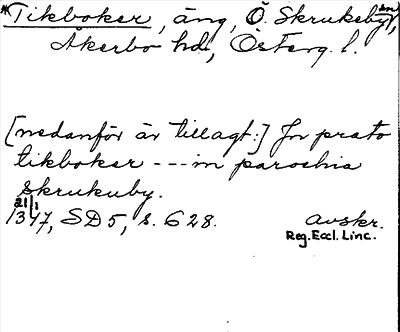 *Tikboker, äng, Ö. Skrukeby sn,
Åkerbo hd., Österg. l.
[nedanför är tillagt:] In prato
tikboker --- in parochia
skrukuby.
21/1
1347, SD 5, s. 628. avskr.
Reg. Eccl. Linc.